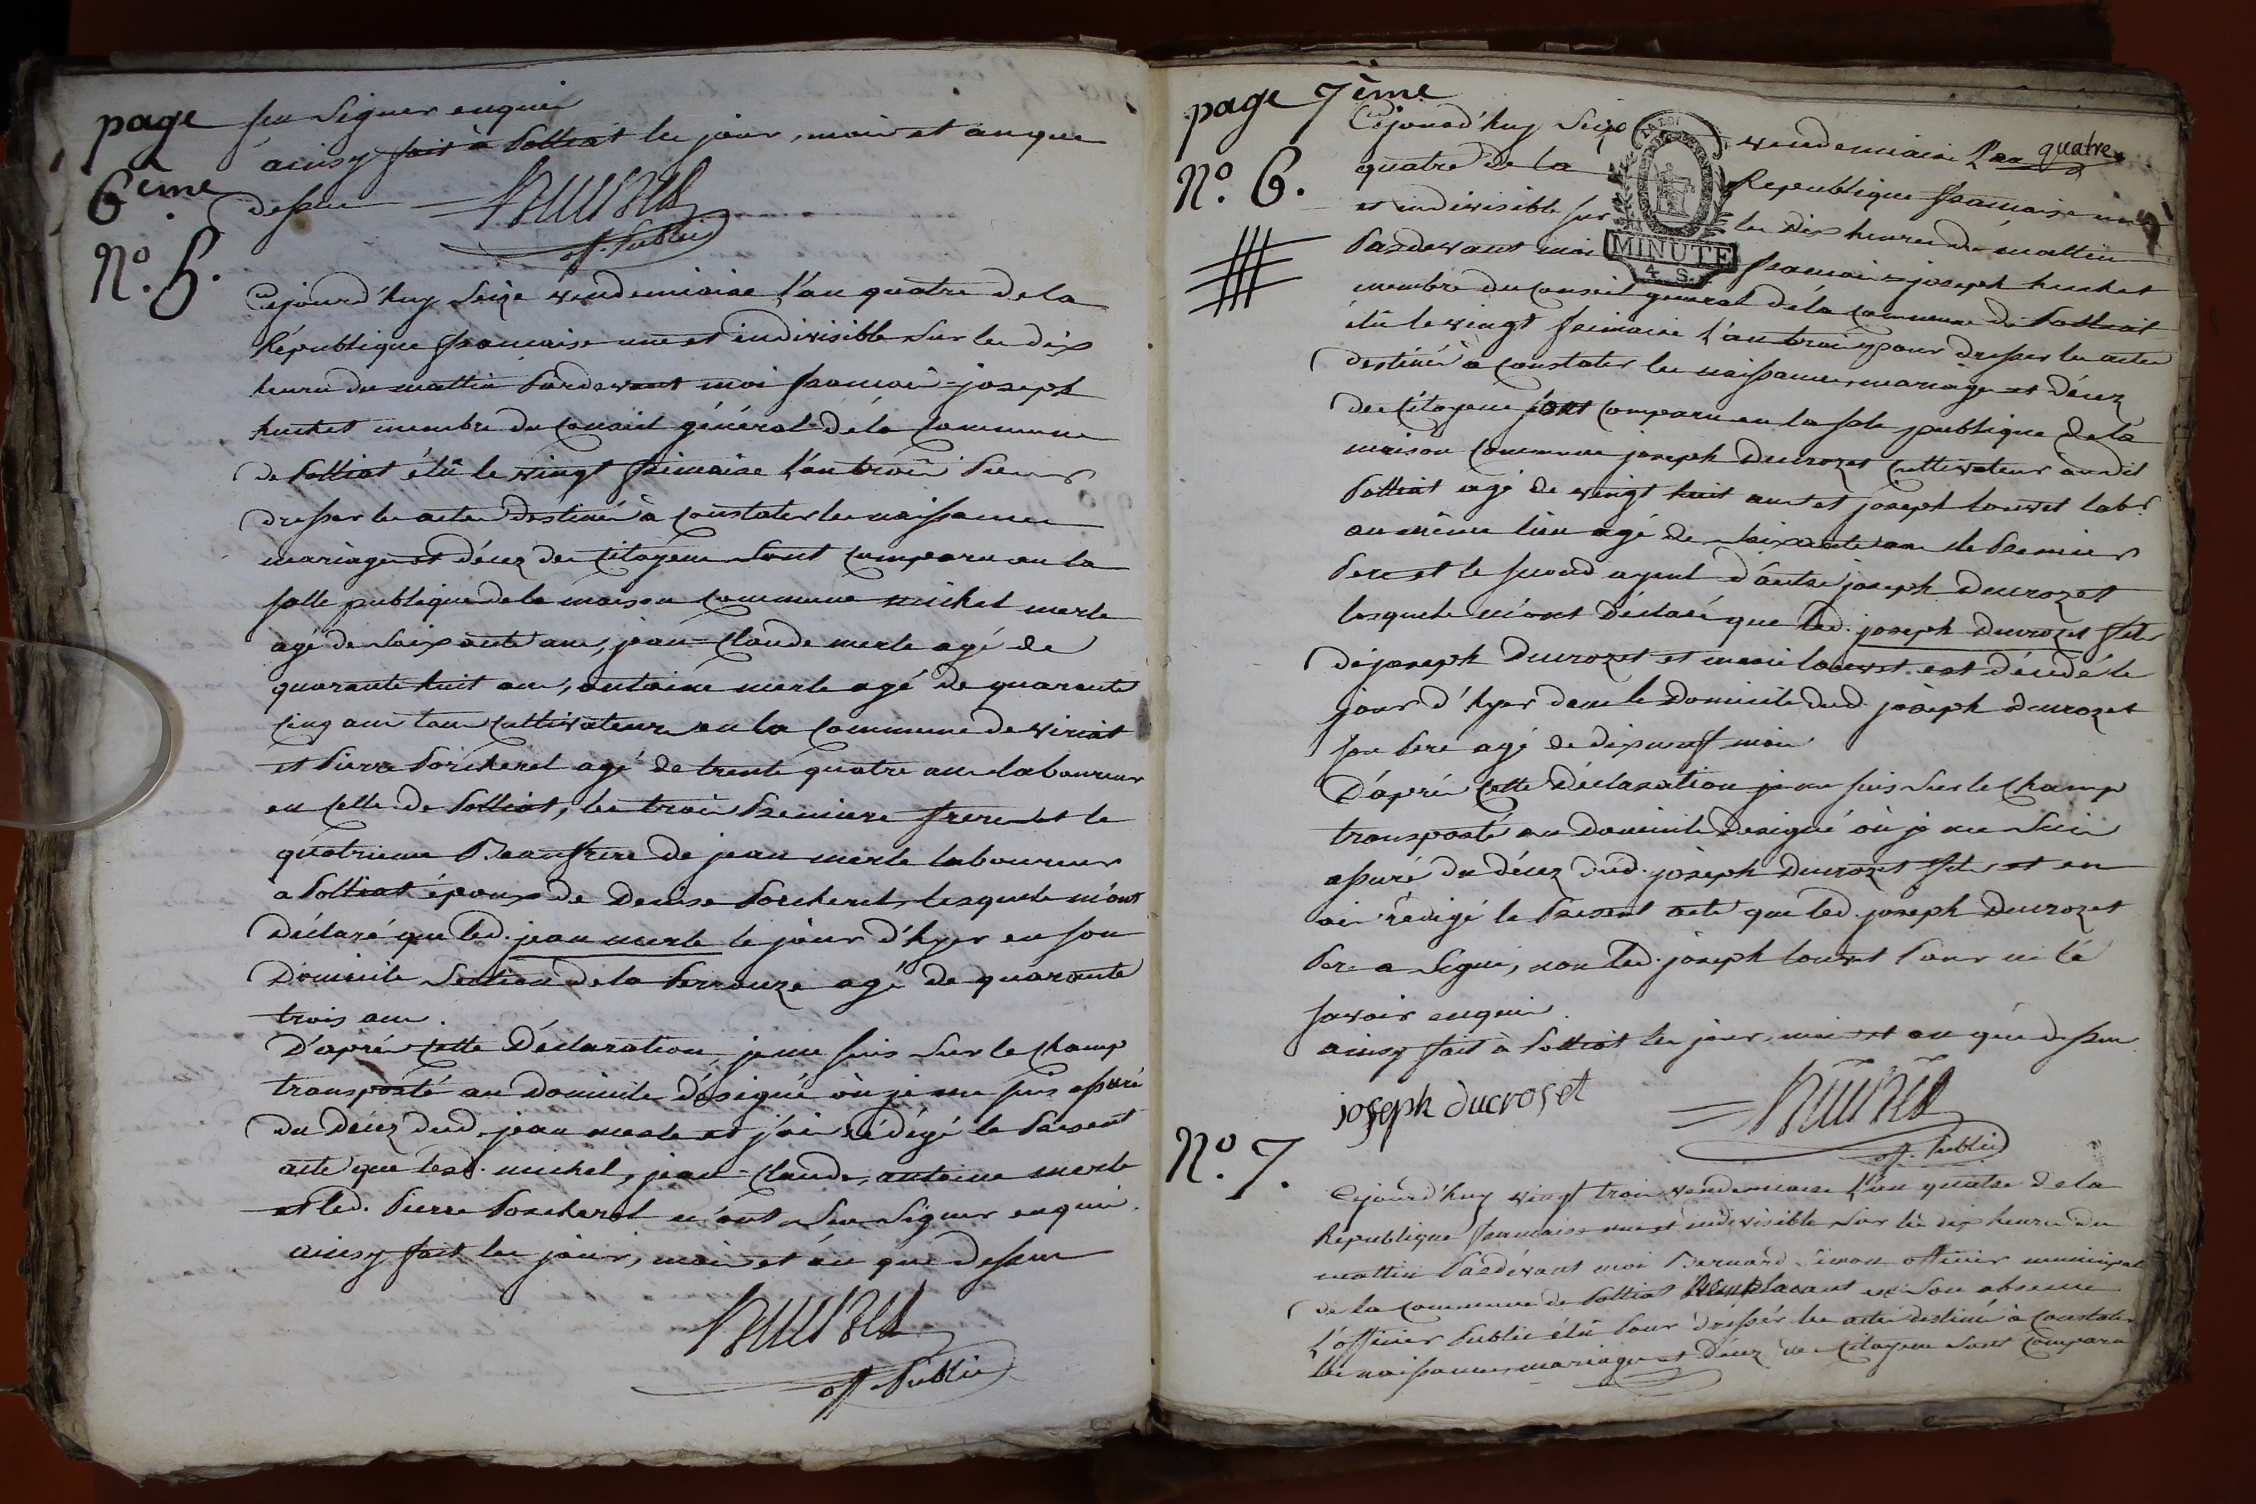 page
6ème
sçu signer enquis
ainsy fait à Polliat les jour, mois et an que
dessus
off. Public
N.º 5.
Cejourd'huy seize vendemiaire l'an quatre de la
République francaise une et indivisible sur les dix
heures du mattin Pardevant moi francois-joseph
huchet membre du Conseil général de la Commune
de Polliat élû le vingt frimaire l'an trois Pour
dresser les actes destinés à constater les naissances
mariages et décez des Citoyens sont comparu en la
salle publique de la maison commune michel merle
agé de soixante ans, jean-Claude merle agé de
quarante huit ans, antoine merle agé de quarante
cinq ans tous cultivateurs en la commune de viriat
et Pierre Porcherel agé de trente quatre ans laboureur
en celle de Polliat, les trois Premiers freres et le
quatrieme Beaufrere de jean merle laboureur
a Polliat époux de Denise Porcherel, lesquels m'ont
déclaré que led. jean merle le jour d'hyer en son
Domicile section de la Perrouze agé de quarante
trois ans.
D'après cette Déclaration, je me suis sur le champ
transporté au domicile désigné où je me suis assuré
du Décez dud. jean merle et j'ai rédigé le Present
acte que lesd. michel, jean-Claude, antoine merle
et led. Pierre Porcherel n'ont sçu signer enquis.
ainsy fait les jour, mois et an que dessus
off. Public
page 7ème
N.º 6.
LA LOI
MINUTE
4 S.
Cejourd'huy seize vendemiaire l'an quatre
quatre de la République francaise une
et indivisible sur les Dix heures du mattin
Pardevant moi francois-joseph huchet
membre du conseil général de la commune de Polliat
élû le vingt frimaire l'an trois pour dresser les actes
destinés à constater les naissances, mariages et Décez
des Citoyens sont comparu en la sale publique de la
maison commune joseph Ducrozet Cultivateur audit
Polliat agé de vingt huit ans et joseph Louvet labr.
au même lieu agé de soixante ans le Premier
Pere et le second ayeul d'autre joseph Ducrozet
lesquels m'ont Déclaré que led. joseph Ducrozet fils
de joseph Ducrozet et marie louvet est décédé le
jour d'hyer dans le Domicile dud. joseph Ducrozet
son Pere agé de dix neuf mois
D'après cette Déclaration je me suis sur le champ
transporté au Domicile Designé où je me suis
assuré du décez dud. joseph Ducrozet fils et en
ai rédigé le Present acte que led. joseph Ducrozet
Pere a signé, non led. joseph louvet Pour ne le
savoir enquis.
ainsy fait à Polliat les jour, mois et an que dessus
joseph ducroset
off. Public
N.º 7.
Cejourd'huy vingt trois vendemiaire l'an quatre de la
République francaise une et indivisible sur les dix heures du
mattin Pardevant moi Bernard Simon officier municipal
de la commune de Polliat Remplacant en son absence
l'officier Public élû Pour dresser les actes destinés à constater
les naissances, mariages et Décez des Citoyens sont comparu